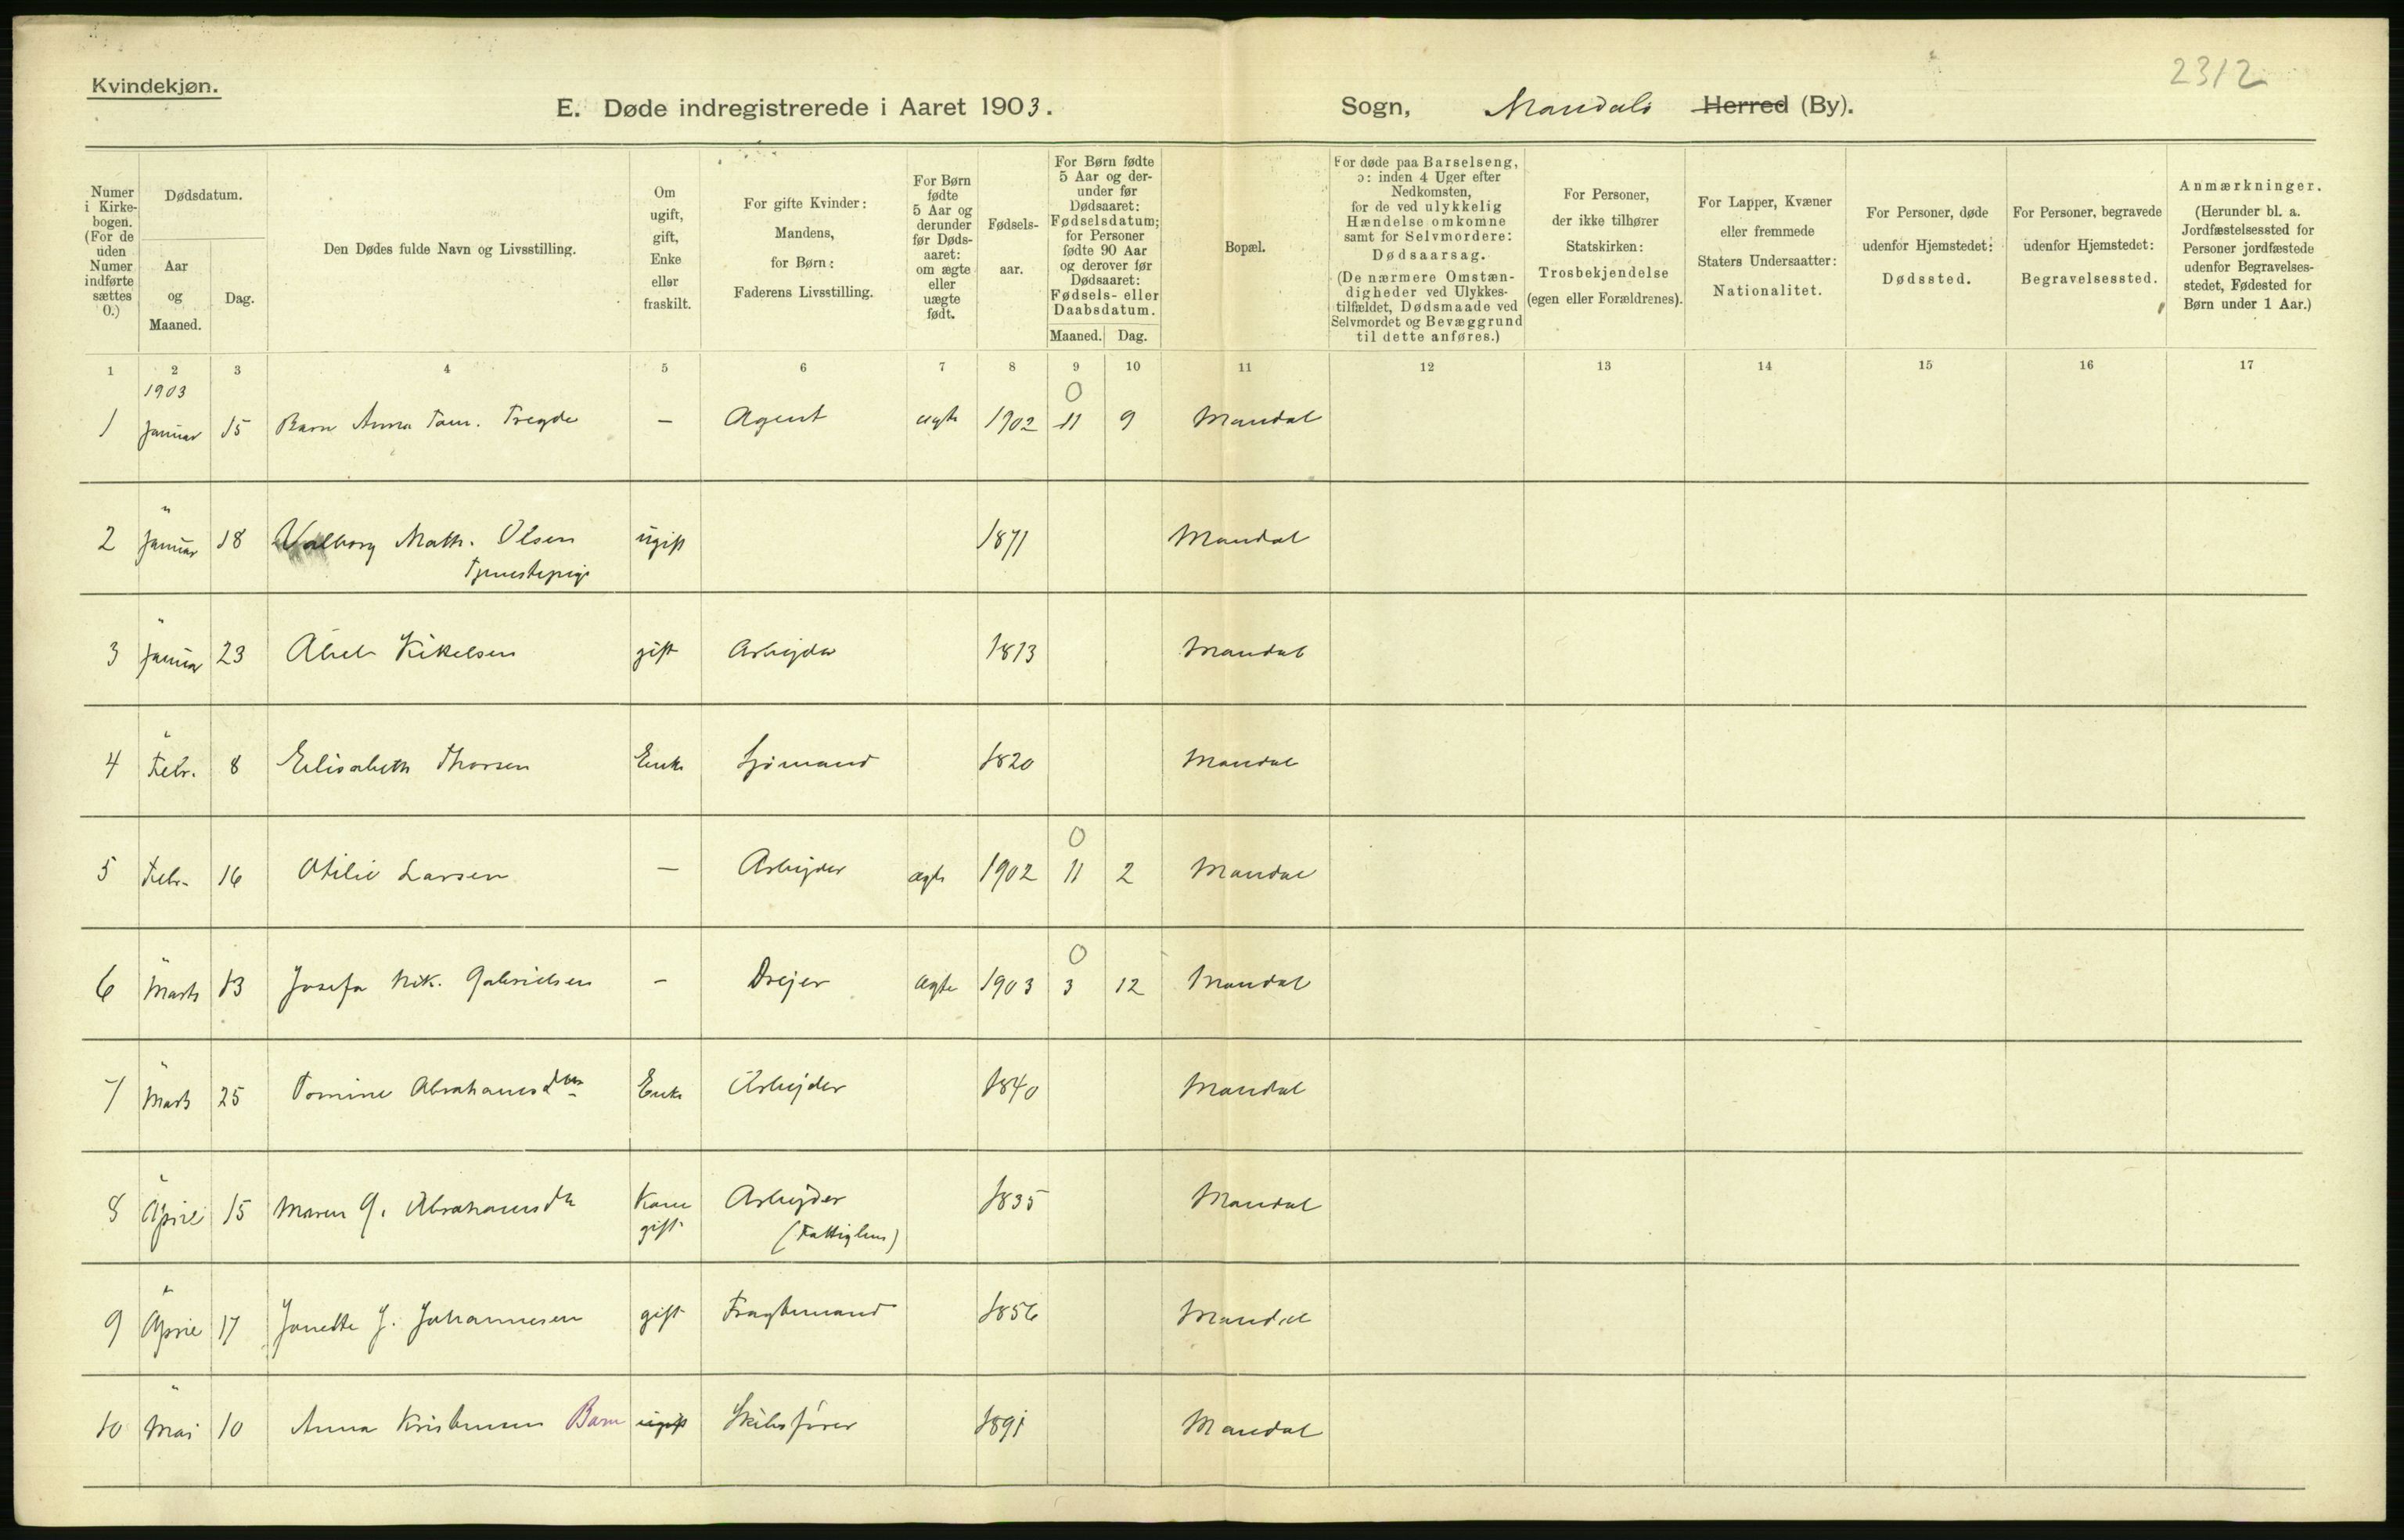 Kvindekjøn.
2312
E. Døde indregistrerede i Aaret 1903. Sogn, Mandals Herred (By).
Numer i Kirkebogen. (For de uden Numer indførte sættes 0.)
Dødsdatum.
Aar og Maaned.
Dag.
Den Dødes fulde Navn og Livsstilling.
Om ugift, gift, Enke eller fraskilt.
For gifte Kvinder: Mandens, for Børn: Faderens Livsstilling.
For Børn fødte 5 Aar og derunder før Dødsaaret: om ægte eller uægte født.
Fødselsaar.
For Børn fødte 5 Aar og derunder før Dødsaaret: Fødselsdatum; for Personer fødte 90 Aar og derover før Dødsaaret: Fødsels- eller Daabsdatum.
Maaned. Dag.
Bopæl.
For døde paa Barselseng, ɔ: inden 4 Uger efter Nedkomsten, for de ved ulykkelig Hændelse omkomne samt for Selvmordere: Dødsaarsag. (De nærmere Omstændigheder ved Ulykkestilfældet, Dødsmaade ved Selvmordet og Bevæggrund til dette anføres.)
For Personer, der ikke tilhører Statskirken: Trosbekjendelse (egen eller Forældrenes).
For Lapper, Kvæner eller fremmede Staters Undersaatter: Nationalitet.
For Personer, døde udenfor Hjemstedet: Dødssted.
For Personer, begravede udenfor Hjemstedet: Begravelsessted.
Anmærkninger. (Herunder bl. a. Jordfæstelsessted for Personer jordfæstede udenfor Begravelsesstedet, Fødested for Børn under 1 Aar.)
1 2 3 4 5 6 7 8 9 10 11 12 13 14 15 16 17
1903 0
1 Januar 15 Barn Anna Tom. Tregde — Agent ægte 1902 11 9 Mandal
"
2 Januar 18 Valborg Math. Olsen ugift 1871 Mandal
Tjenestepige
"
3 Januar 23 Abel Kikelsen gift Arbejder 1813 Mandal
"
4 Febr. 8 Elisabeth Thorsen Enke Sjømand 1820 Mandal
0
5 Febr. 16 Otilie Larsen — Arbejder ægte 1902 11 2 Mandal
" 0
6 Marts 13 Josefa Nik. Gabrielsen – Drejer ægte 1903 3 12 Mandal
"
7 Marts 25 Tomine Abrahamsdtr Enke Arbejder 1840 Mandal
"
8 April 15 Maren G. Abrahamsdtr Kone Arbejder 1835 Mandal
gift (Fattiglem)
"
9 April 17 Janette J. Johannesen gift Fragtemand 1856 Mandal
"
10 Mai 10 Anna Kristensen Barn ugift Skibsfører 1891 Mandal